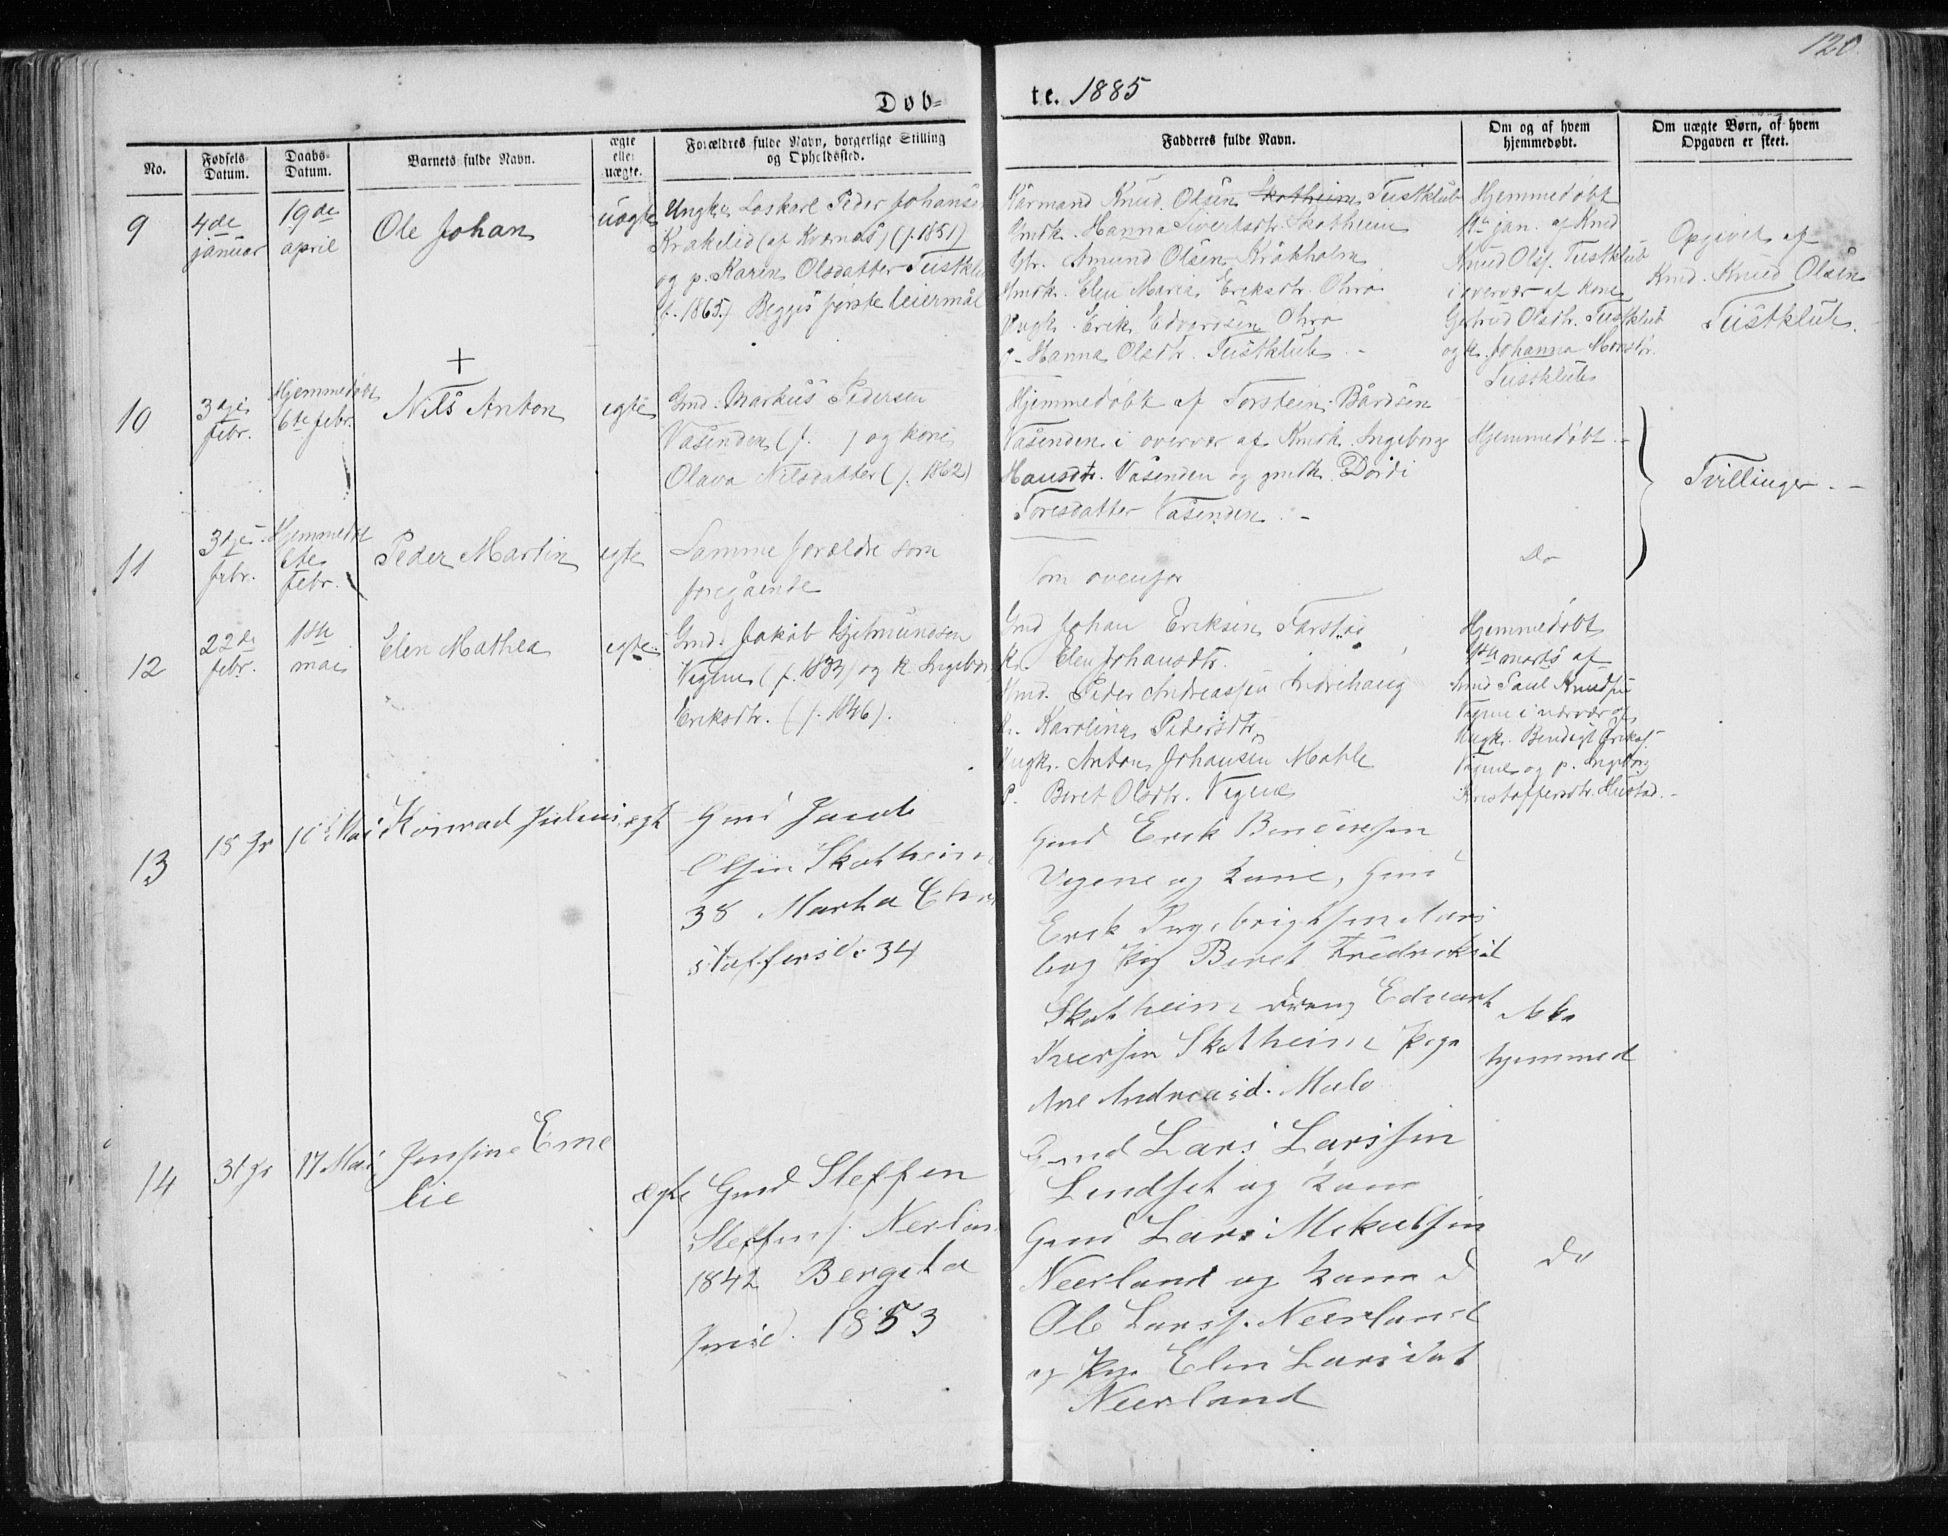 120.
Døb-
te. 1885
No.
Fødsels-
Datum.
Daabs-
Datum.
Barnets fulde Navn.
ægte
eller
uægte.
Forældres fulde Navn, borgerlige Stilling
og Opholdssted.
Fadderes fulde Navn.
Om og af hvem
hjemmedøbt.
Om uægte Børn, af hvem
Opgaven er skeet.
9
4de
januar
19de
april
Ole Johan
uægte
Ungk. Løskarl Peder Johanse
Krakelid (af Kværnes) (f. 1851)
og p. Karen Olsdatter Tustklu
(f. 1865.) Begges første leiermål
Kårmand Knud Olsen Skotheim Tustklub
Gmdk. Hanna Sivertsdtr. Skotheim
Gmdk. Elen Maria Eriksdtr. Ohro
Ungk. Erik Edvardsen Ohro
p. Hanna Olsdtr. Tustklub. -
Hjemmedøbt
jan. af Kmd
Knud Ols. Tustklub
i overvær af kone
Gertrud Olsdtr. Tustklub
og k. Johanna Monsdtr.
Tustklub
Opgivet af
Kmd. Knud Olsen
Tustklub.
10
3dje
febr.
Hjemmedøbt
6te febr.
+
Nils Anton
egte
Gmd. Markus Pedersen
Vasenden (f. ) og kone
Olava Nilsdatter (f. 1862)
Hjemmedøbt af Torstein Bårdsen
Vasenden i overvær af Kmdk. Ingeborg
Hansdtr. Vasenden og gmdk. Dordi
Toresdatter Vasenden. -
Hjemmedøbt. -
Tvillinger. -
11
3dje
febr.
Hjemmedøbt
6te
febr.
Peder Martin
egte
Samme forældre som
foregående
Som ovenfor
Do
12
22de
febr.
mai
Elen Mathea
egte.
Gmd. Jakob Gjetmundsen
Vegene (f. 1833) og k. Ingebor
Eriksdtr. (f. 1846).
Gmd Johan Eriksen Farstad
K. Elen Johansdtr.
Gmd. Peder Andreassen Indrehaug
K. Karolina Pedersdtr.
Ungk. Anton Johansen Mahle
P. Beret Olsdtr. Vegene
Hjemmedøbt
marts af
Gmd Paul Knudsen
Vegene i nærvær af
Ungk. Bendigt Eriks.
Vegene og p. Ingeborg
Kristoffersdtr. Hustad. -
13
18 Fr
Mai
Konrad Julius
egt
Gmd Jacob
Olsen Skotheim
38 Martha Chri
stoffersd. 34
Gmd Erik Bendixsen
Vegene og Kone, Gmd
Erik Ingebrigtsen
Pig Beret Fredriksd
Skotheim Dreng Edvart
Iversen Skotheim Pige
Ane Andreasd. Malo
Ikke
hjemmed
14
31 Jr
17 Mai
Jensine Eme
lie
ægte
Gmd Steffen
Steffens. Neerlan
1842 Bergita
Jensd. 1853
Gmd Lars Larssen
Lindset og Kone
Gmd Lars Mikalsen
Neerland og Kone d
Ole Larss. Neerland
og Pige Elen Larsdat
Neerland
Do